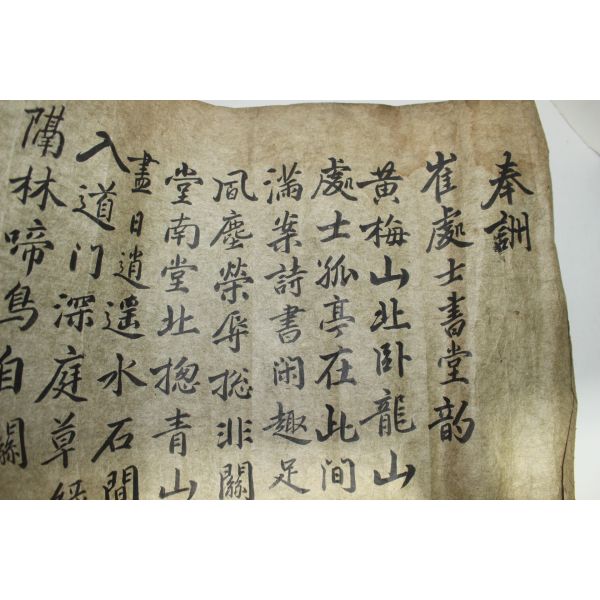 奉詶
崔處士書堂韵
黄梅山北卧龍山
處士孤亭在此间
滿案詩書闲趣足
風塵榮辱揔非關
堂南堂北揔青山
盡日逍遥水石間
入道门深庭草緑
隔林啼鳥自關